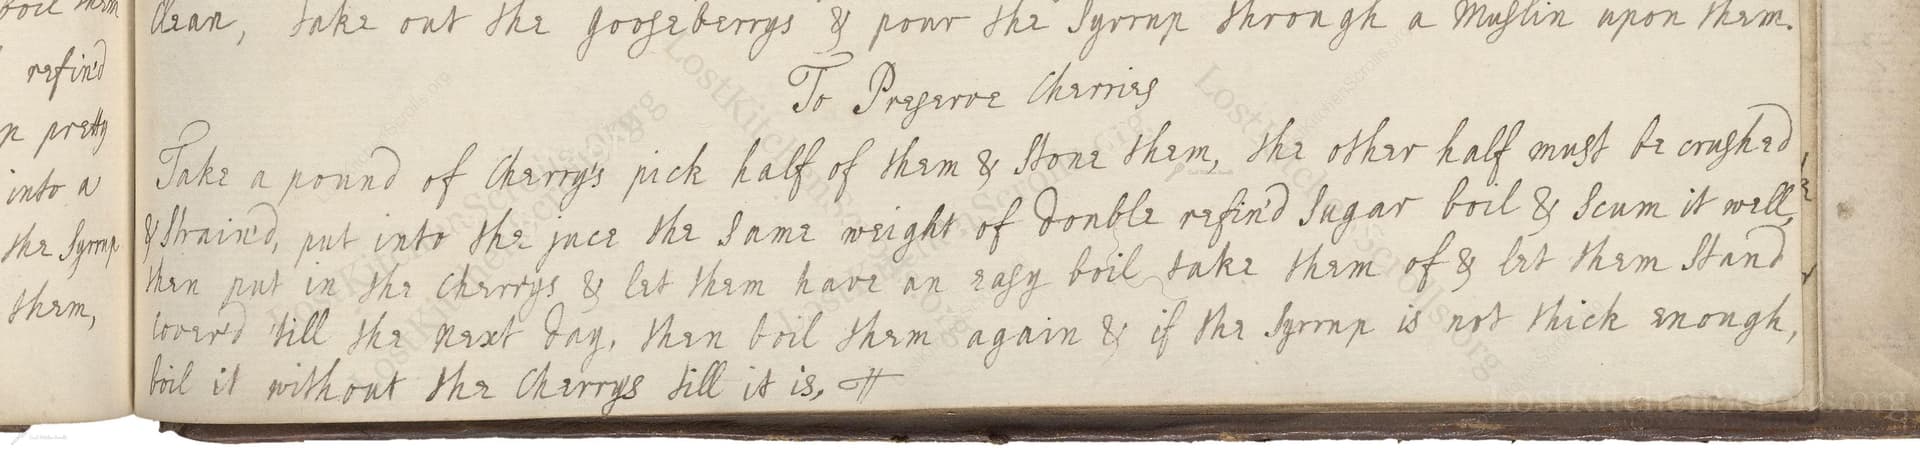 boil them
refin'd
pretty
into a
the Syrrup
them,
Clean, take out the gooseberrys & pour the Syrrup through a Muslin upon them.
To Preserve Cherries
Take a pound of Cherry's pick half of them & Stone them, the other half must be crushed
& Strain'd, put into the juce the Same weight of double refin'd Sugar boil & Scum it well,
then put in the cherrys & let them have an easy boil take them of & let them Stand
Cover'd till the next day, then boil them again & if the Syrrup is not thick enough,
boil it without the Cherrys till it is.
LostKitchenScrolls.org